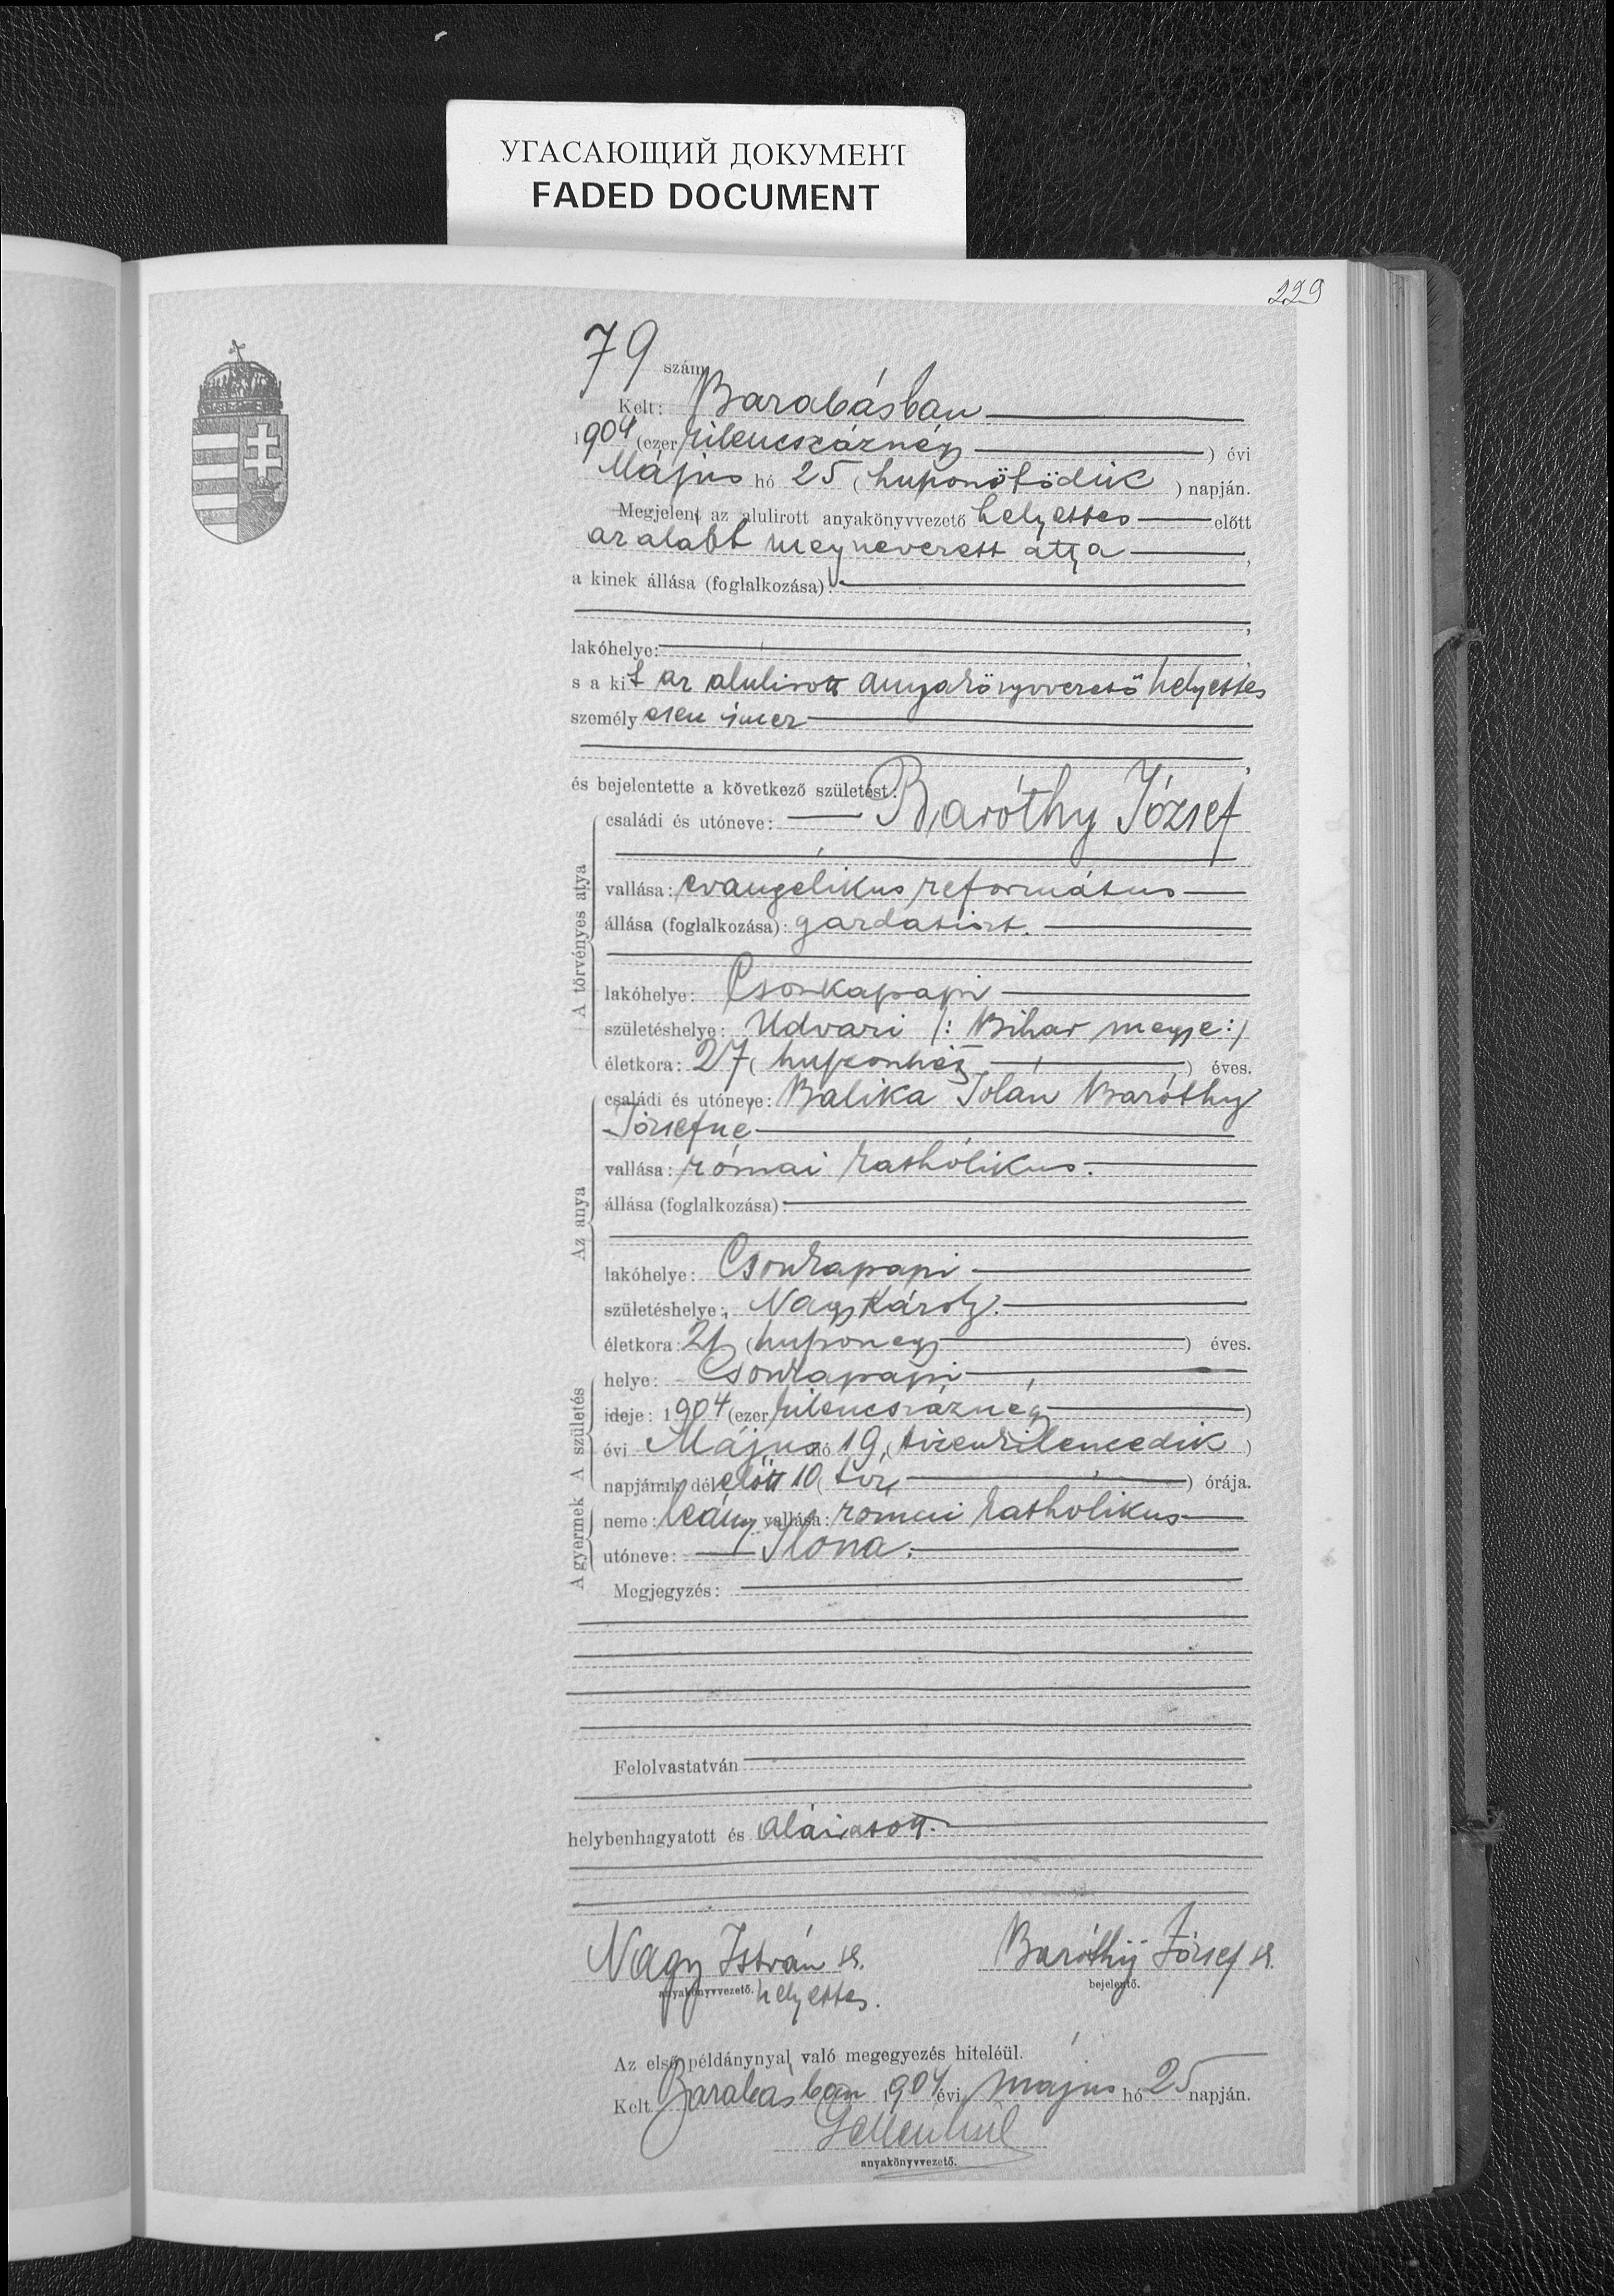 УГАСАЮЩИЙ ДОКУМЕНТ
FADED DOCUMENT
229
79 szám
Kelt: Barabásban
1904 (ezer kilencszáznégy) évi
Május hó 25 (huszonötödik) napján.
Megjelent az alulirott anyakönyvvezető helyettes előtt
az alább megnevezett attya,
a kinek állása (foglalkozása):
lakóhelye:
s a kit az alulirott anyakönyvvezető helyettes
személyesen ismer
és bejelentette a következő születést:
A törvényes atya
családi és utóneve: Baróthy József
vallása: evangélikus református
állása (foglalkozása): gazdatiszt.
lakóhelye: Csonkapapi
születéshelye: Udvari /: Bihar megye :/
életkora: 27 (huszonhét) éves.
Az anya
családi és utóneve: Balika Jolán Baróthy
Józsefné
vallása: római katholikus.
állása (foglalkozása):
lakóhelye: Csonkapapi
születéshelye: Nagy Károly.
életkora: 21 (huszonegy) éves.
A születés
helye: Csonkapapi
ideje: 1904 (ezer kilencszáznégy)
évi Május hó 19 (tizenkilencedik)
napjának délelőtt 10 (tíz) órája.
A gyermek
neme: leány vallása: romai katholikus
utóneve: Ilona.
Megjegyzés:
Felolvastatván
helybenhagyatott és aláiratott.
Nagy István sk. Baróthÿ József sk.
anyakönyvvezető. helyettes. bejelentő.
Az első példánynyal való megegyezés hiteléül.
Kelt Barabásban 1904 évi május hó 25 napján.
anyakönyvvezető.